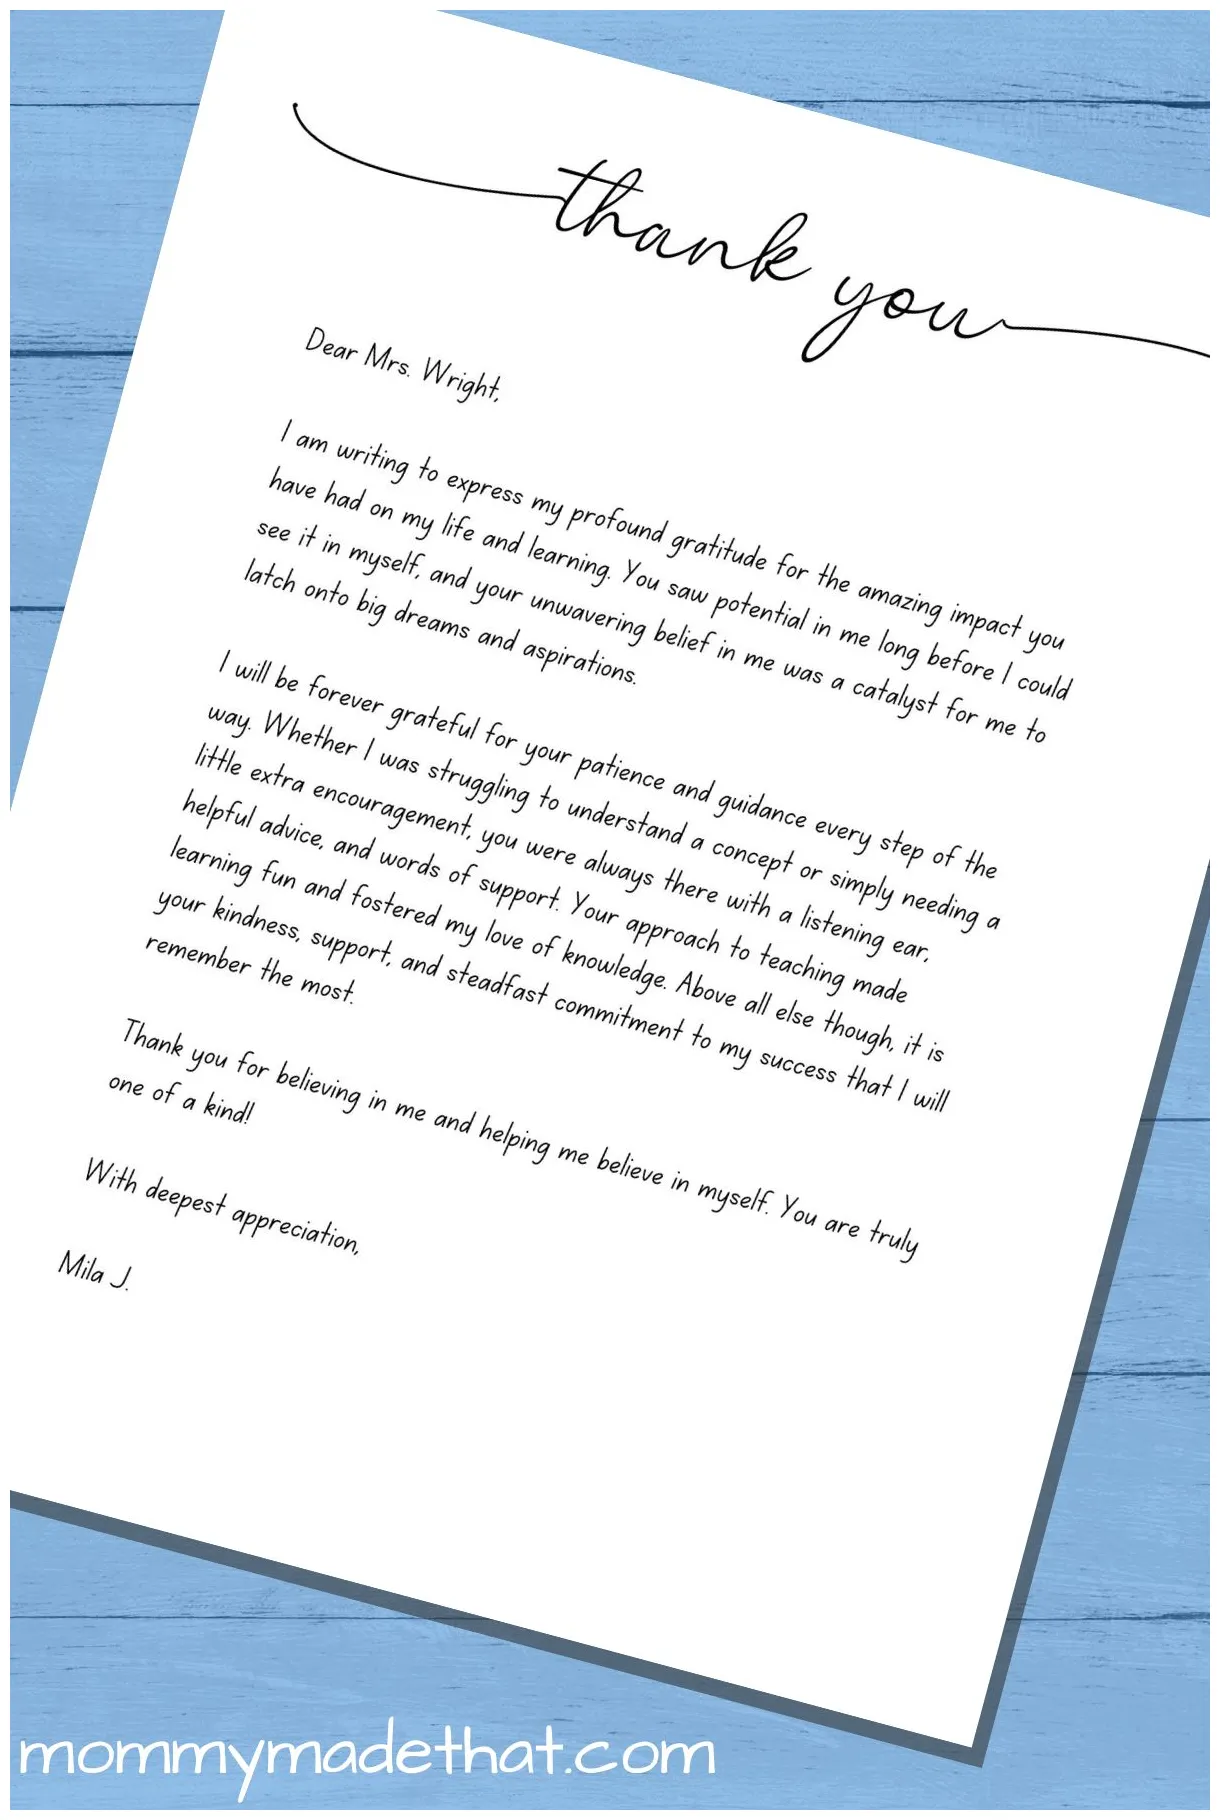 thank you
Dear Mrs. Wright,
I am writing to express my profound gratitude for the amazing impact you
have had on my life and learning. You saw potential in me long before I could
see it in myself, and your unwavering belief in me was a catalyst for me to
latch onto big dreams and aspirations.
I will be forever grateful for your patience and guidance every step of the
way. Whether I was struggling to understand a concept or simply needing a
little extra encouragement, you were always there with a listening ear,
helpful advice, and words of support. Your approach to teaching made
learning fun and fostered my love of knowledge. Above all else though, it is
your kindness, support, and steadfast commitment to my success that I will
remember the most.
Thank you for believing in me and helping me believe in myself. You are truly
one of a kind!
With deepest appreciation,
Mila J.
mommymadethat.com